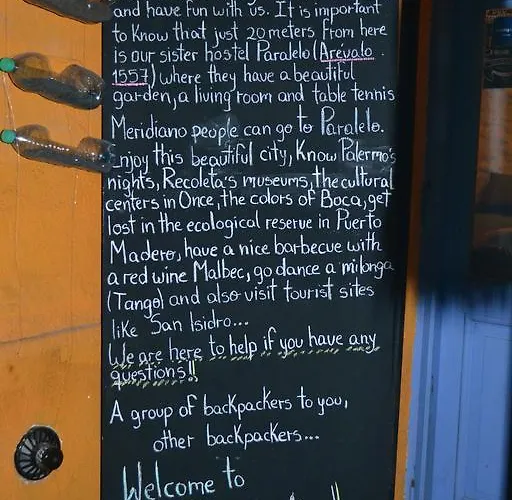 and have fun with us. It is important
to Know that just 20 meters from here
is our sister hostel Paralelo (Arévalo
1557) where they have a beautiful
garden, a living room and table tennis
Meridiano people can go to Paralelo.
Enjoy this beautiful city, Know Palermo's
nights, Recoleta's museums, the cultural
centers in Once, the colors of Boca, get
lost in the ecological reserve in Puerto
Madero, have a nice barbecue with
a red wine Malbec, go dance a milonga
(Tango) and also visit tourist sites
like San Isidro...
We are here to help if you have any
questions!!
A group of backpackers to you,
other backpackers...
Welcome to